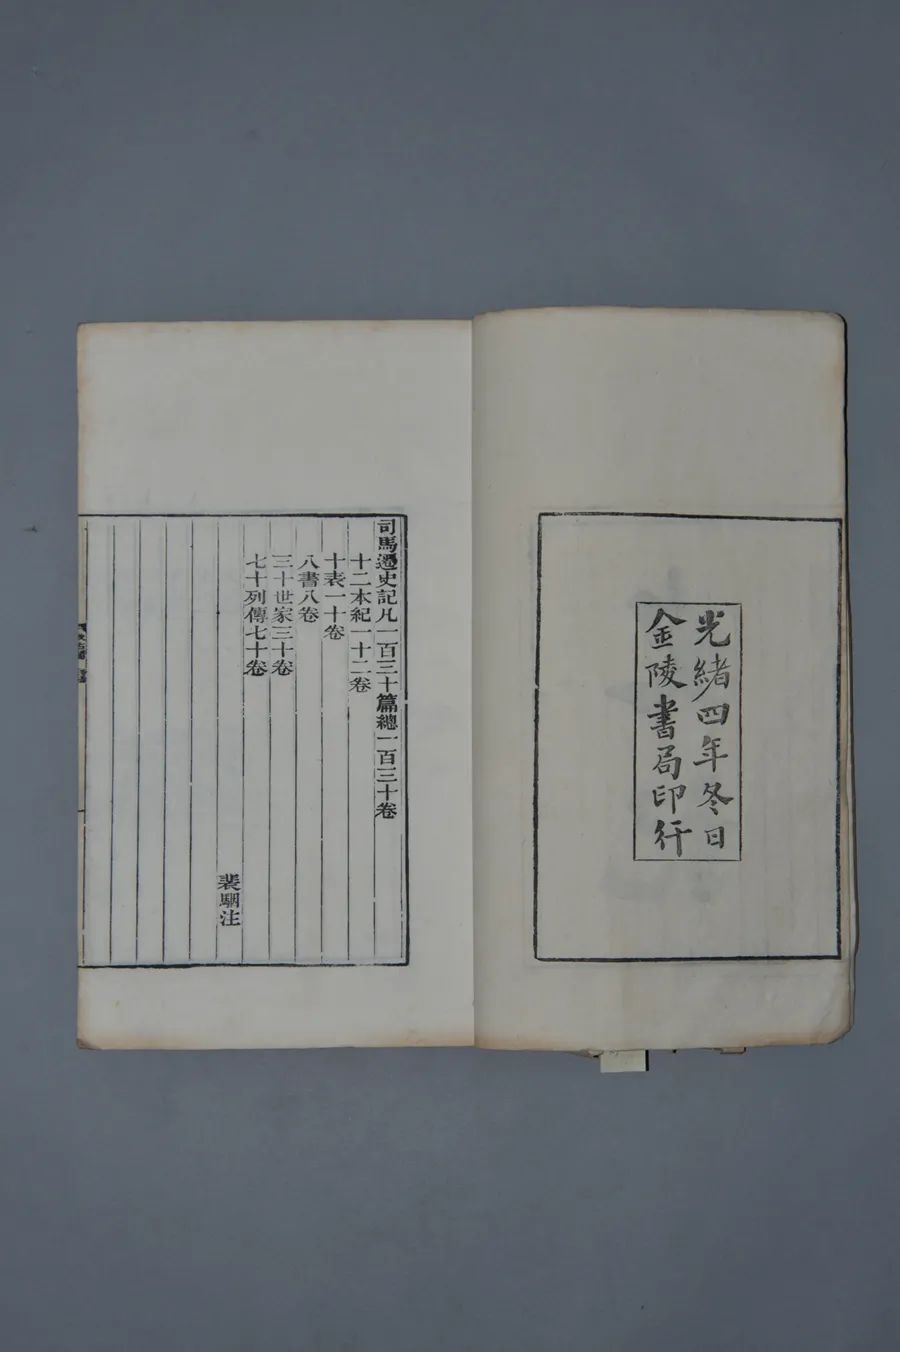 光緒四年冬日
金陵書局印行
司馬遷史記凡一百三十篇總一百三十卷
十二本紀一十二卷
十表一十卷
八書八卷
三十世家三十卷
七十列傳七十卷
裴駰注